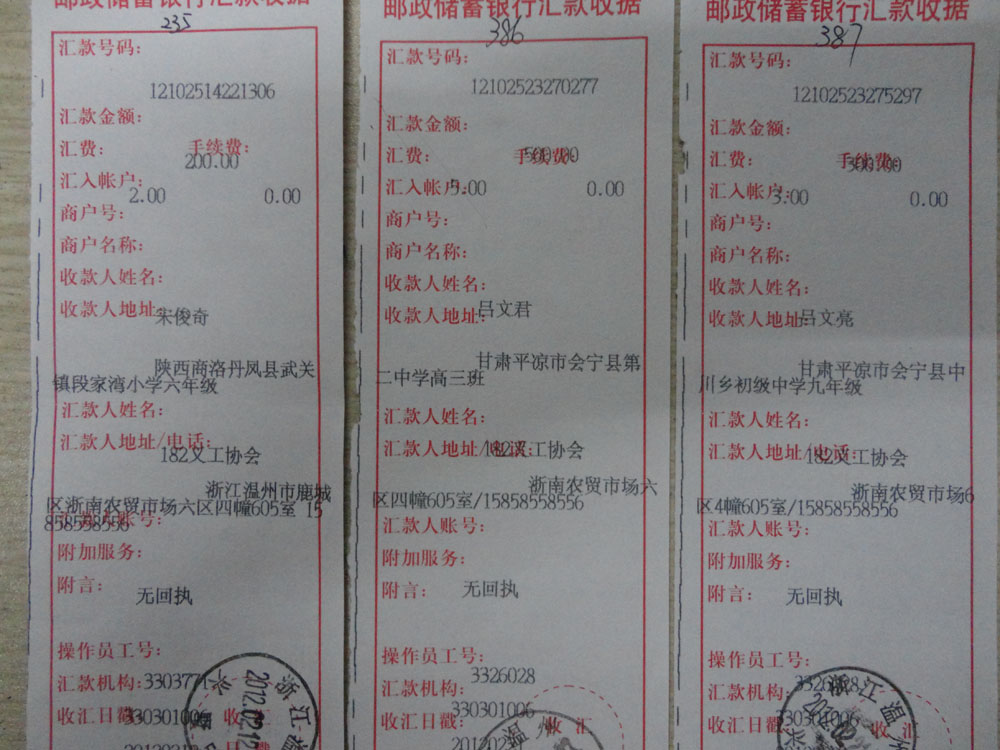 邮政储蓄银行汇款收据
235
汇款号码:
12102514221306
汇款金额:
汇费: 手续费:
200.00
汇入帐户:
2.00 0.00
商户号:
商户名称:
收款人姓名:
收款人地址:
宋俊奇
陕西商洛丹凤县武关
镇段家湾小学六年级
汇款人姓名:
汇款人地址/电话:
182义工协会
浙江温州市鹿城
区浙南农贸市场六区四幢605室 15
858558556
附加服务:
附言:
无回执
操作员工号:
汇款机构:3303771
收汇日戳:
330301006 收汇
2012.02.12
浙江温
邮政储蓄银行汇款收据
386
汇款号码:
12102523270277
汇款金额:
汇费: 手续费:
500.00
汇入帐户:
5.00 0.00
商户号:
商户名称:
收款人姓名:
收款人地址:
吕文君
甘肃平凉市会宁县第
二中学高三班
汇款人姓名:
汇款人地址/电话:
182义工协会
浙南农贸市场六
区四幢605室/15858558556
汇款人账号:
附加服务:
附言: 无回执
操作员工号:
3326028
汇款机构:
330301006
收汇日戳: 收汇
邮政储蓄银行汇款收据
387
汇款号码:
12102523275297
汇款金额:
汇费: 手续费:
300.00
汇入帐户:
3.00 0.00
商户号:
商户名称:
收款人姓名:
收款人地址:
吕文亮
甘肃平凉市会宁县中
川乡初级中学九年级
汇款人姓名:
汇款人地址/电话:
182义工协会
浙南农贸市场6
区4幢605室/15858558556
汇款人账号:
附加服务:
附言: 无回执
操作员工号:
3326028
汇款机构:
330301006
收汇日戳: 收汇
浙江温